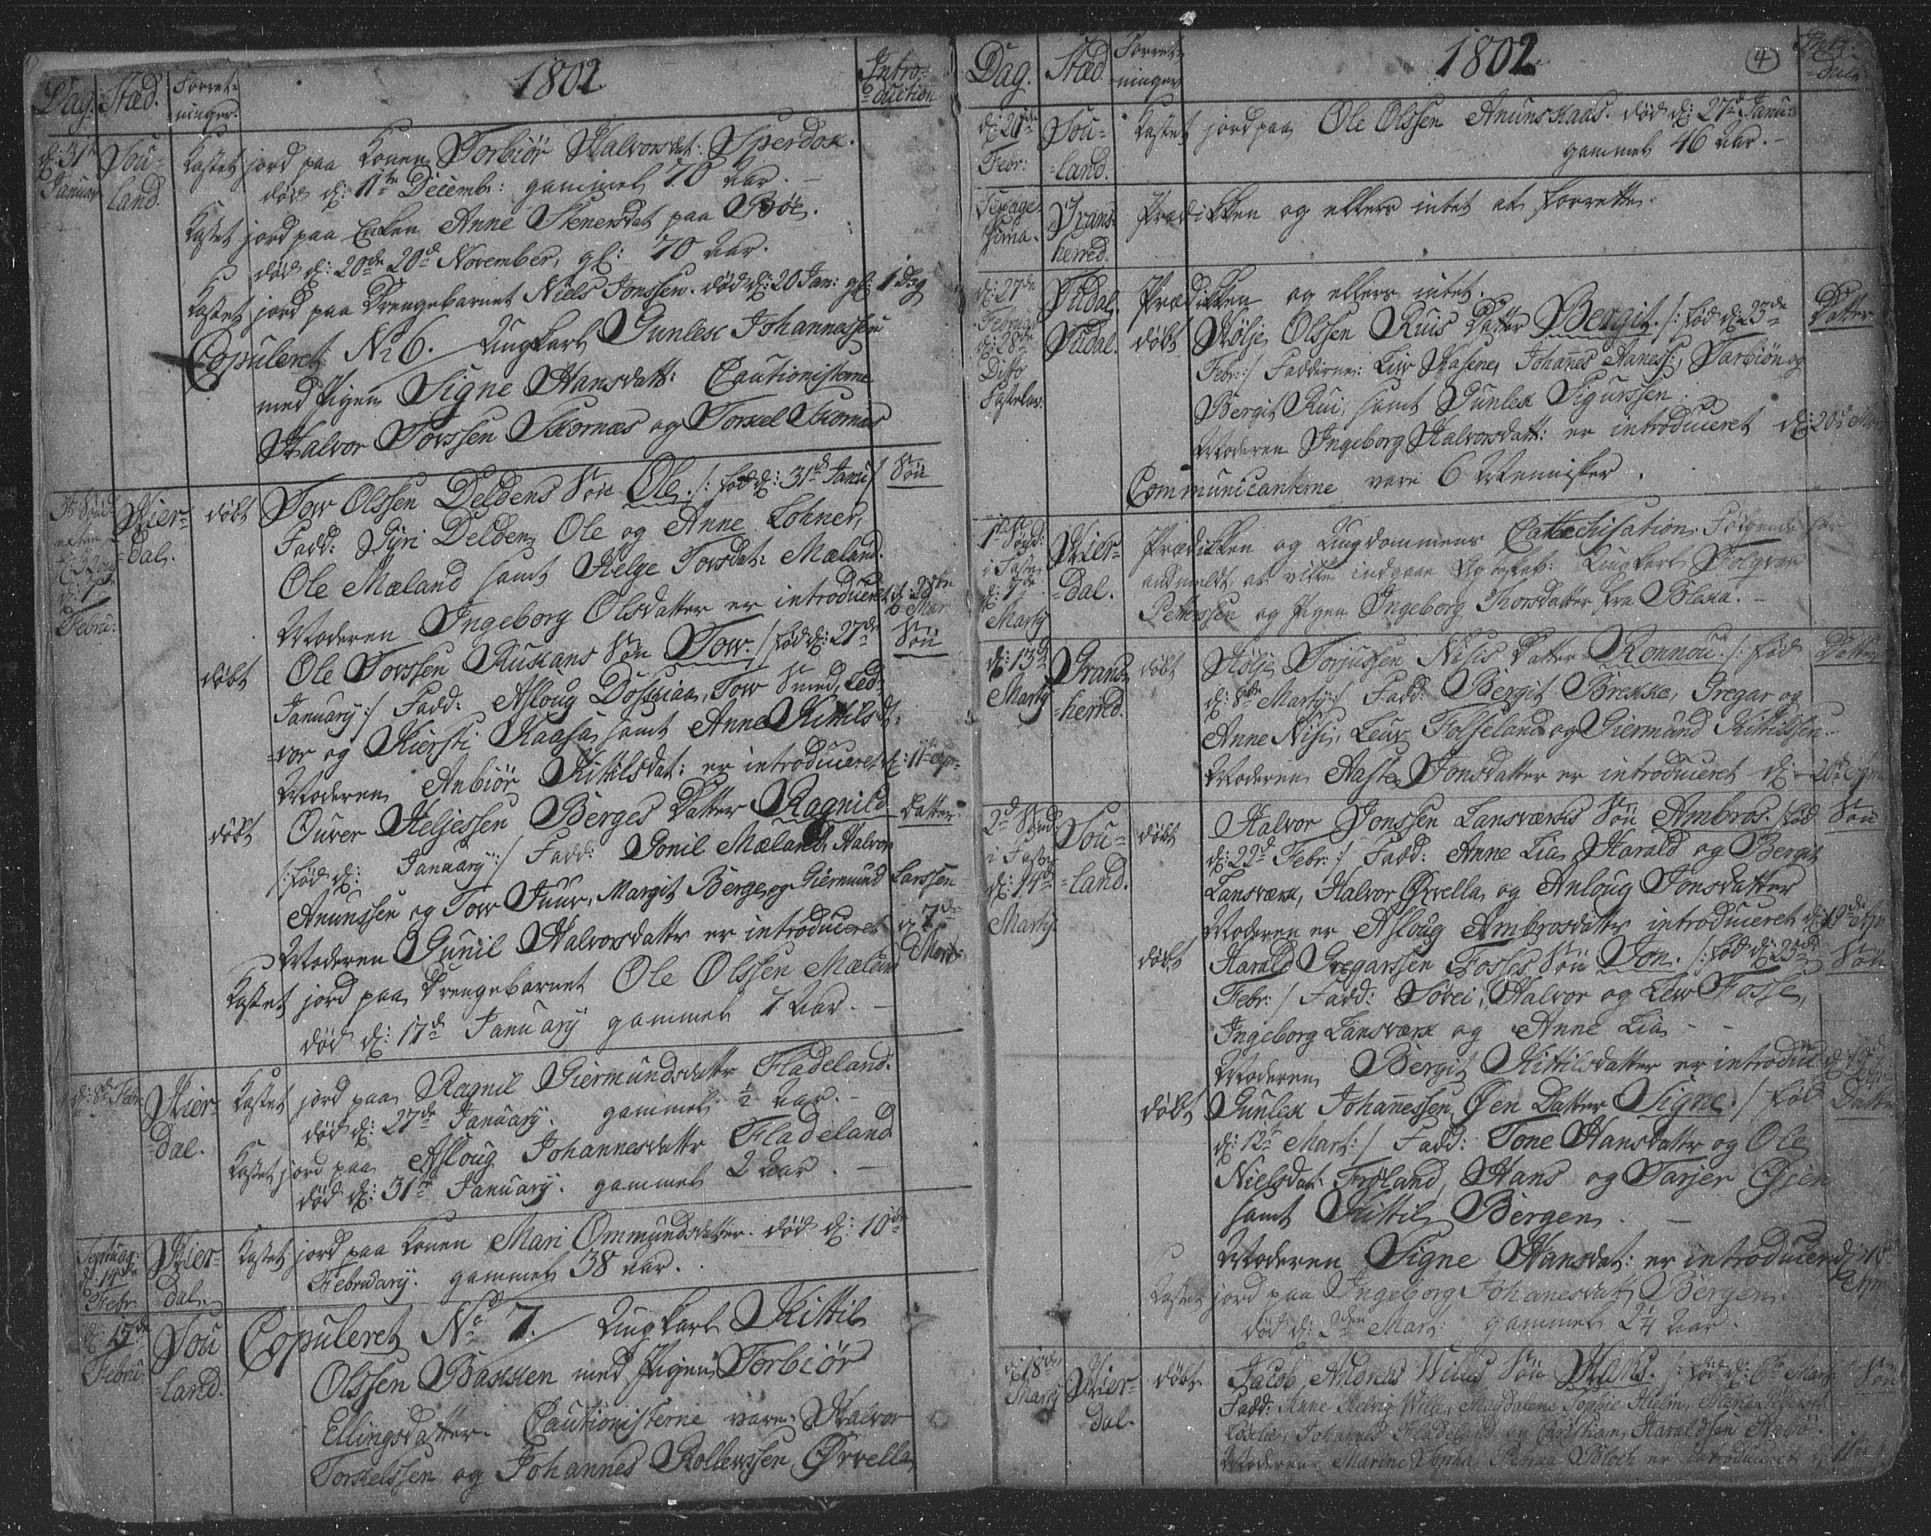 Dag. Stæd. Forret-
ninger.
1802.
Intro-
duction
d: 31te
Januar
Sou-
land.
Kastet jord paa Konen Torbiør Halvorsdat: Sperdok.
død d: 11te Decembr: gammel 70 Aar. —
Kastet jord paa Enken Anne Stenersdat paa Bøe.
død d: 20de 20de November, gl: 70 Aar.
Kastet jord paa Drengebarnet Niels Jonssen. død d: 20 Jan: gl: 1 Dag
Copuleret No 6. Ungkarl Gunlek Johannessen
med Pigen Signe Hansdatt: Cautionisterne
Halvor Torssen Skornæs og Torkel Skornæs
Hier-
dal.
Febru:
døbt Tow Olssen Deldens Søn Ole. /: fød d: 31te Janu: / Søn
Fadd: Gyri Delden, Ole og Anne Lohner,
Ole Mæland samt Helge Torsdat: Mæland.
Moderen Ingeborg Olsdatter er introduceret d: 28de Mar:
døbt Ole Torssen Rukans Søn Tow. / fød d: 27de Søn
January :/ Fadd: Asloug Dospiaa, Tow Smed, Hal-
vor og Kiersti Kaasa, samt Anne Kittilsd:
Moderen Anbiør Kittilsdat: er introduceret d: 11te Apr:
døbt Ouver Heljessen Berges Datter Ragnild Datter
/: fød d: January :/ Fadd: Gonil Mæland, Halvor
Anunssen og Tow Juuv, Margit Berge og Giermund Larssen
Moderen Gunil Halvorsdattr er introduceret d: 7de Mart:
Kastet jord paa Drengebarnet Ole Olssen Mæland
død d: 17de January gammel 7 Aar. —
d: 8de Febr:
Hier-
dal.
Kastet jord paa Ragnil Giermundsdattr Fladeland.
død d: 27de January. gammel ½ Aar. —
Kastet jord paa Asloug Johannesdattr Fladeland
død d: 31te January. gammel 2 Aar. —
Septuag:
d: 14de
Febr:
Hier-
dal.
Kastet jord paa Konen Mari Ommundsdatter. død d: 10de
February. gammel 38 Aar.
d: 15de
Febru:
Sou
land.
Copuleret No 7. / Ungkarl Kittil
Olssen Bakken med Pigen Torbiør
Ellingsdatter. Cautionisterne vare: Halvor
Torkelssen og Johannes Rollewssen Ørvella
Dag. Stæd. Forret-
ninger
1802.
4
Intr:
duct:
d: 20de
Febr:
Sou-
land.
Kastet jord paa Ole Olssen Anunskaas. død d: 27de Janu:
gammel 46 Aar. —
Sexage-
sima.
Grans-
herred.
Prædikken og ellers intet at forrette.
d: 27de
Februar
Tudal.
Prædikken og ellers intet.
d: 28de
Ditto
Fastelav:
Tudal.
døbt Hølje Olssen Ruis Datter Bergit. /: fød d: 23de Datter
Febr: / Fadderne: Liw Hasene, Johanes Aaness:, Torbiøn og
Bergit Rui, samt Gunlek Sigurssen.
Moderen Ingeborg Halvorsdatt: er introduceret d: 20de Mar
Communicanterne vare 6 Mennisker.
1te Sønd:
i Faste
d: 7de
Marty
Hier-
dal.
Prædikken og Ungdommens Cattechisation. Følgende har
anmeldt at ville indgaae Ægteskab: Ungkarl Solgvar
Petterssen og Pigen Ingeborg Thorsdatter fra Bleka. —
d: 13de
Marty
Grans-
herred.
døbt Hølje Torjussen Nisis Datter Ronnou. /: fød Datter
d: 8de Marty :/ Fadd: Bergit Brekke, Gregar og
Anne Nisi, Leuv Folseland og Giermund Kittilssen.
Moderen Aaste Jonsdatter er introduceret d: 20de Apri
2de Sønd:
i Faste
d: 14de
Marty.
Sou-
land.
døbt Halvor Jonssen Lansværks Søn Ambros. /: fød Søn
d: 22de Febr: / Fadd: Anne Lia, Harald og Bergit
Lansværk, Halvor Ørvella, og Anloug Jonsdatter
Moderen er Asloug Ambrosdattr introduceret d: 19de Apr
døbt Harald Gregarssen Fosses Søn Jon. /: fød d: 23de Søn
Febr: / Fadd: Søvei, Halvor og Liw Fosse,
Ingeborg Lansværk og Anne Lia. — —
Moderen Bergit Kittilsdatter er introduc:
døbt Gunlek Johannessen Øien Datter Signe. / fød Datter
d: 12te Mart: / Fadd: Tone Hansdattr og Ole
Nielsdat: Frøland, Hans og Tarjer Øien
samt Kittil Bergen. —
Moderen Signe Hansdat: er introducer d: 18de
Apri
Kastet jord paa Ingeborg Johanesdatt: Bergen.
død d: 2den Mart: gammel 2¼ Aar.
d: 18de
Marty
Hier-
dal.
døbt Jacob Andreas Willes Søn Hans. /: fød d: 6te Mart: Søn
Fadd: Anne Hedvig Wille, Magdalene Sophie Hielm,
Johannes Fladeland og Haraldsen
Moderen Marine Sophia Bloch er introduceret d: 11te